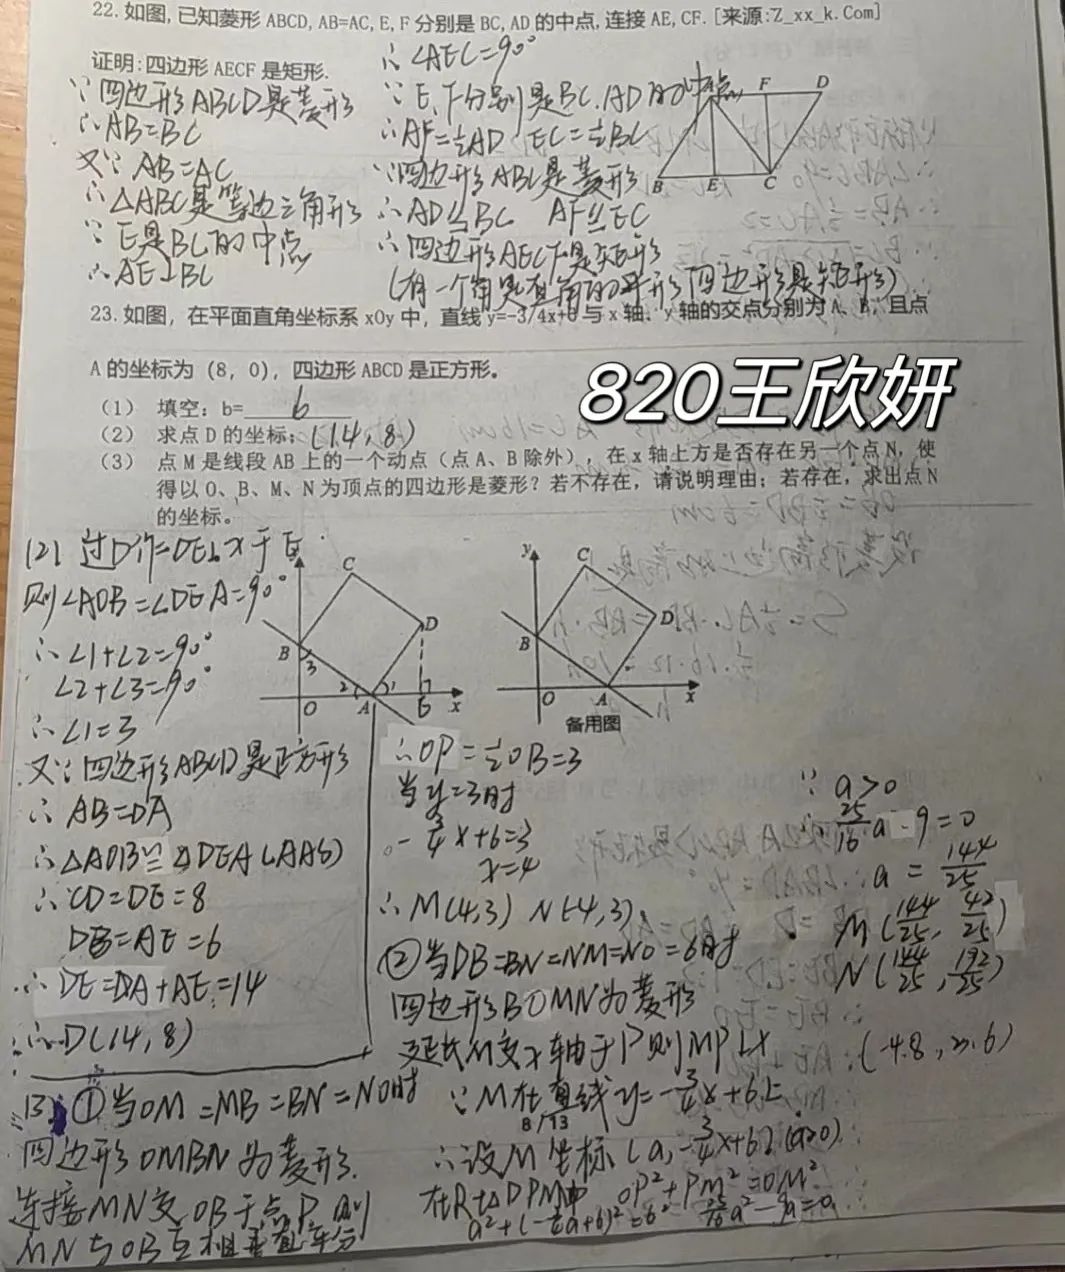 22.如图,已知菱形ABCD,AB=AC,E,F分别是BC,AD的中点,连接AE,CF.[来源:Z_xx_k.Com]
证明:四边形AECF是矩形.
∵四边形ABCD是菱形
∴AB=BC
又∵AB=AC
∴△ABC是等边三角形
∵E是BC的中点
∴AE⊥BC
∴∠AEC=90°
∵E、F分别是BC、AD的中点
∴AF=½AD EC=½BC
∵四边形ABC是菱形
∴AD⫽BC AF⫽EC
∴四边形AECF是矩形
(有一个角是直角的平行四边形是矩形)
F D
B E C
23.如图,在平面直角坐标系xOy中,直线y=-3/4x+b与x轴、y轴的交点分别为A、B,且点
A的坐标为(8,0),四边形ABCD是正方形。
820王欣妍
(1) 填空:b=6
(2) 求点D的坐标;(14,8)
(3) 点M是线段AB上的一个动点(点A、B除外),在x轴上方是否存在另一个点N,使
得以O、B、M、N为顶点的四边形是菱形?若不存在,请说明理由;若存在,求出点N
的坐标。
(2) 过D作DE⊥x于E
则∠AOB=∠DEA=90°
∴∠1+∠2=90°
∠2+∠3=90°
∴∠1=3
又∵四边形ABCD是正方形
∴AB=DA
∴△AOB≌△DEA(AAS)
∴CD=DE=8
DB=AE=6
∴DE=DA+AE=14
∴D(14,8)
C
B D
3
2 1
O A E x
y
C
B D
O A x
备用图
(3)①当OM=MB=BN=NO时
四边形OMBN为菱形.
连接MN交OB于点P,则
MN与OB互相垂直平分
∴OP=½OB=3
当y=3时
-¾x+6=3
x=4
∴M(4,3) N(-4,3)
②当OB=BN=NM=NO=6时
四边形BOMN为菱形
延长M交x轴于P则MP⊥x
∵M在直线y=-¾x+6上
8/13
∴设M坐标(a,-¾x+6)(a>0)
在Rt△OPM中 OP²+PM²=OM²
a²+(-¾a+6)²=6² 25/16a²-9a=0
∵a>0
∴25/16a-9=0
a=144/25
M(144/25,42/25)
N(144/25,192/25)